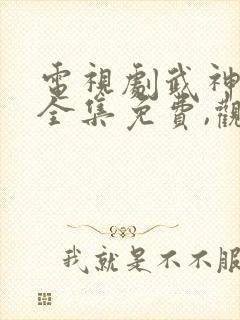 電視劇武神
全集免費,觀
我就是不不服